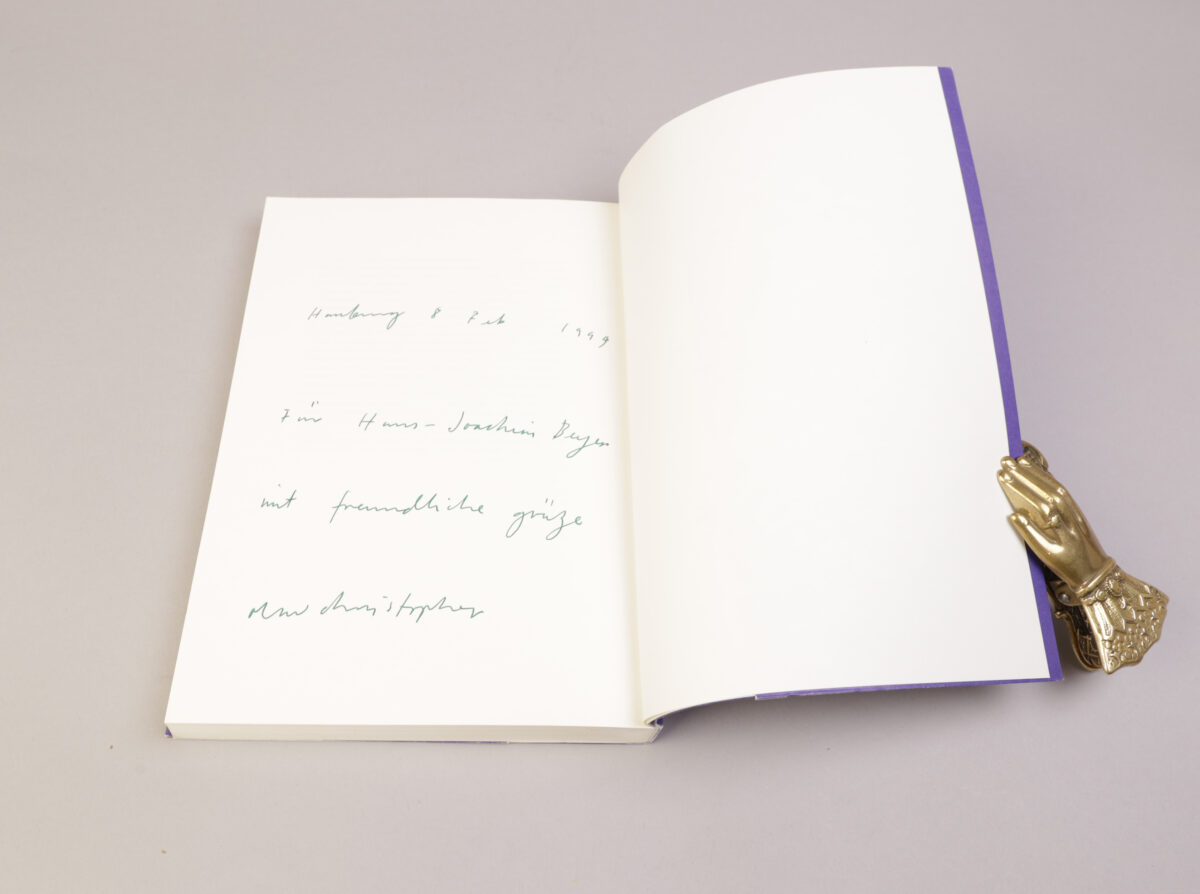 Hamburg 8 Feb 1999
Für Hans-Joachim
mit freundliche grüße
christopher